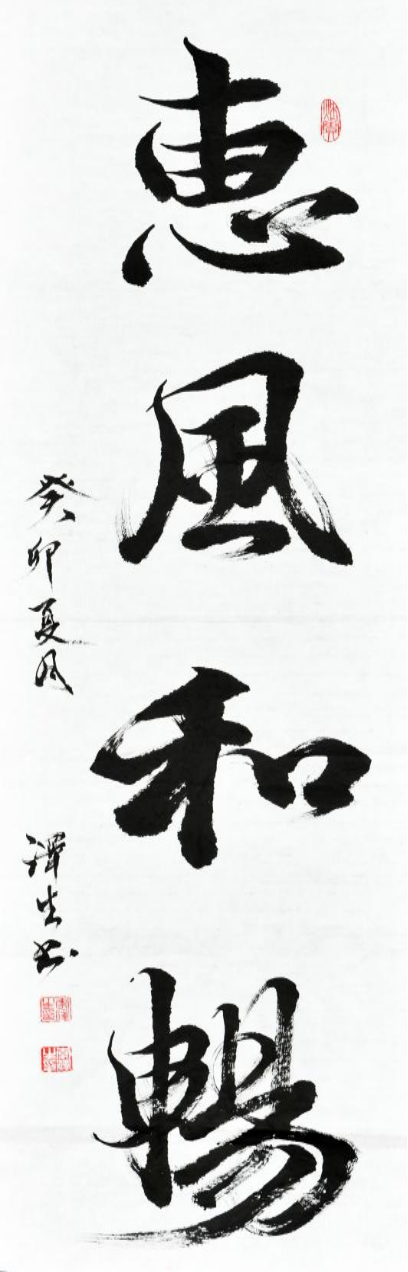 惠風和暢
癸卯夏月
澤生書